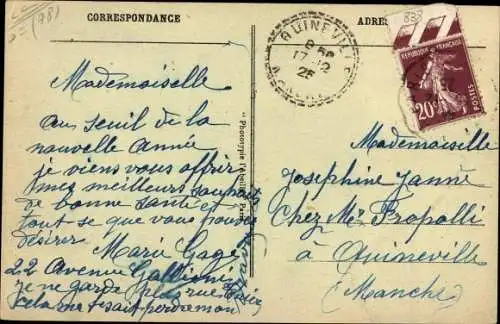 CORRESPONDANCE
Mademoiselle
au seuil de la
nouvelle année
je viens vous offrir
mes meilleurs souhaits
de bonne santé et
tout se que vous pouvez
désirer
Marie Gage
22 Avenue Gallieni
je ne garde plus rue
cela me fesait perdre mon
"Phototypie l'Abeille", Paris
ADRES
837
(78)
QUINEVILLE
17-12
25
REPUBLIQUE FRANÇAISE
20c
POSTES
Mademoiselle
Josephine Janné
Chez Mr Propolli
à Quineville
(Manche)